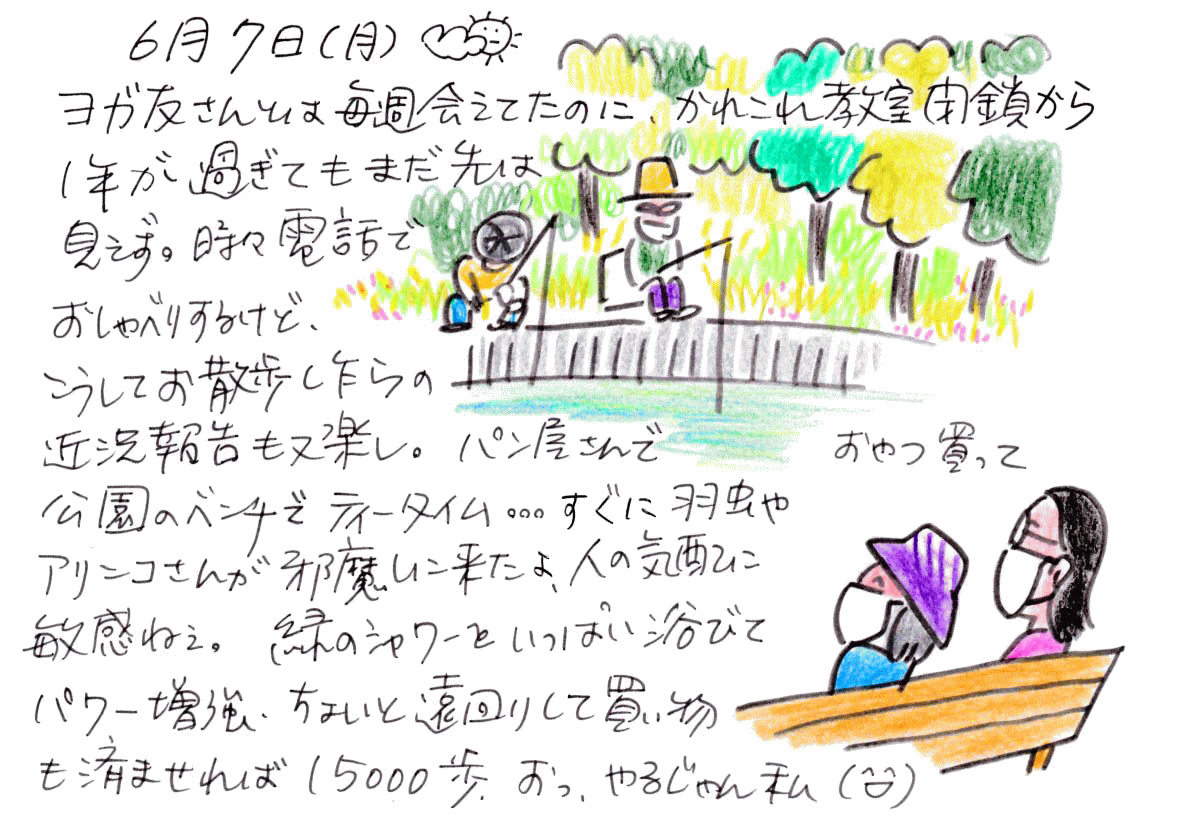 6月7日(月)
ヨガ友さんとは毎週会えてたのに、かれこれ教室閉鎖から
1年が過ぎてもまだ先は
見えず。時々電話で
おしゃべりするけど、
こうしてお散歩し乍らの
近況報告も又楽し。パン屋さんで おやつ買って
公園のベンチでティータイム...すぐに羽虫や
アリンコさんが邪魔しに来たよ、人の気配に
敏感ねぇ。緑のシャワーをいっぱい浴びて
パワー増強、ちょいと遠回りして買い物
も済ませれば15000歩、おっ、やるじゃん私